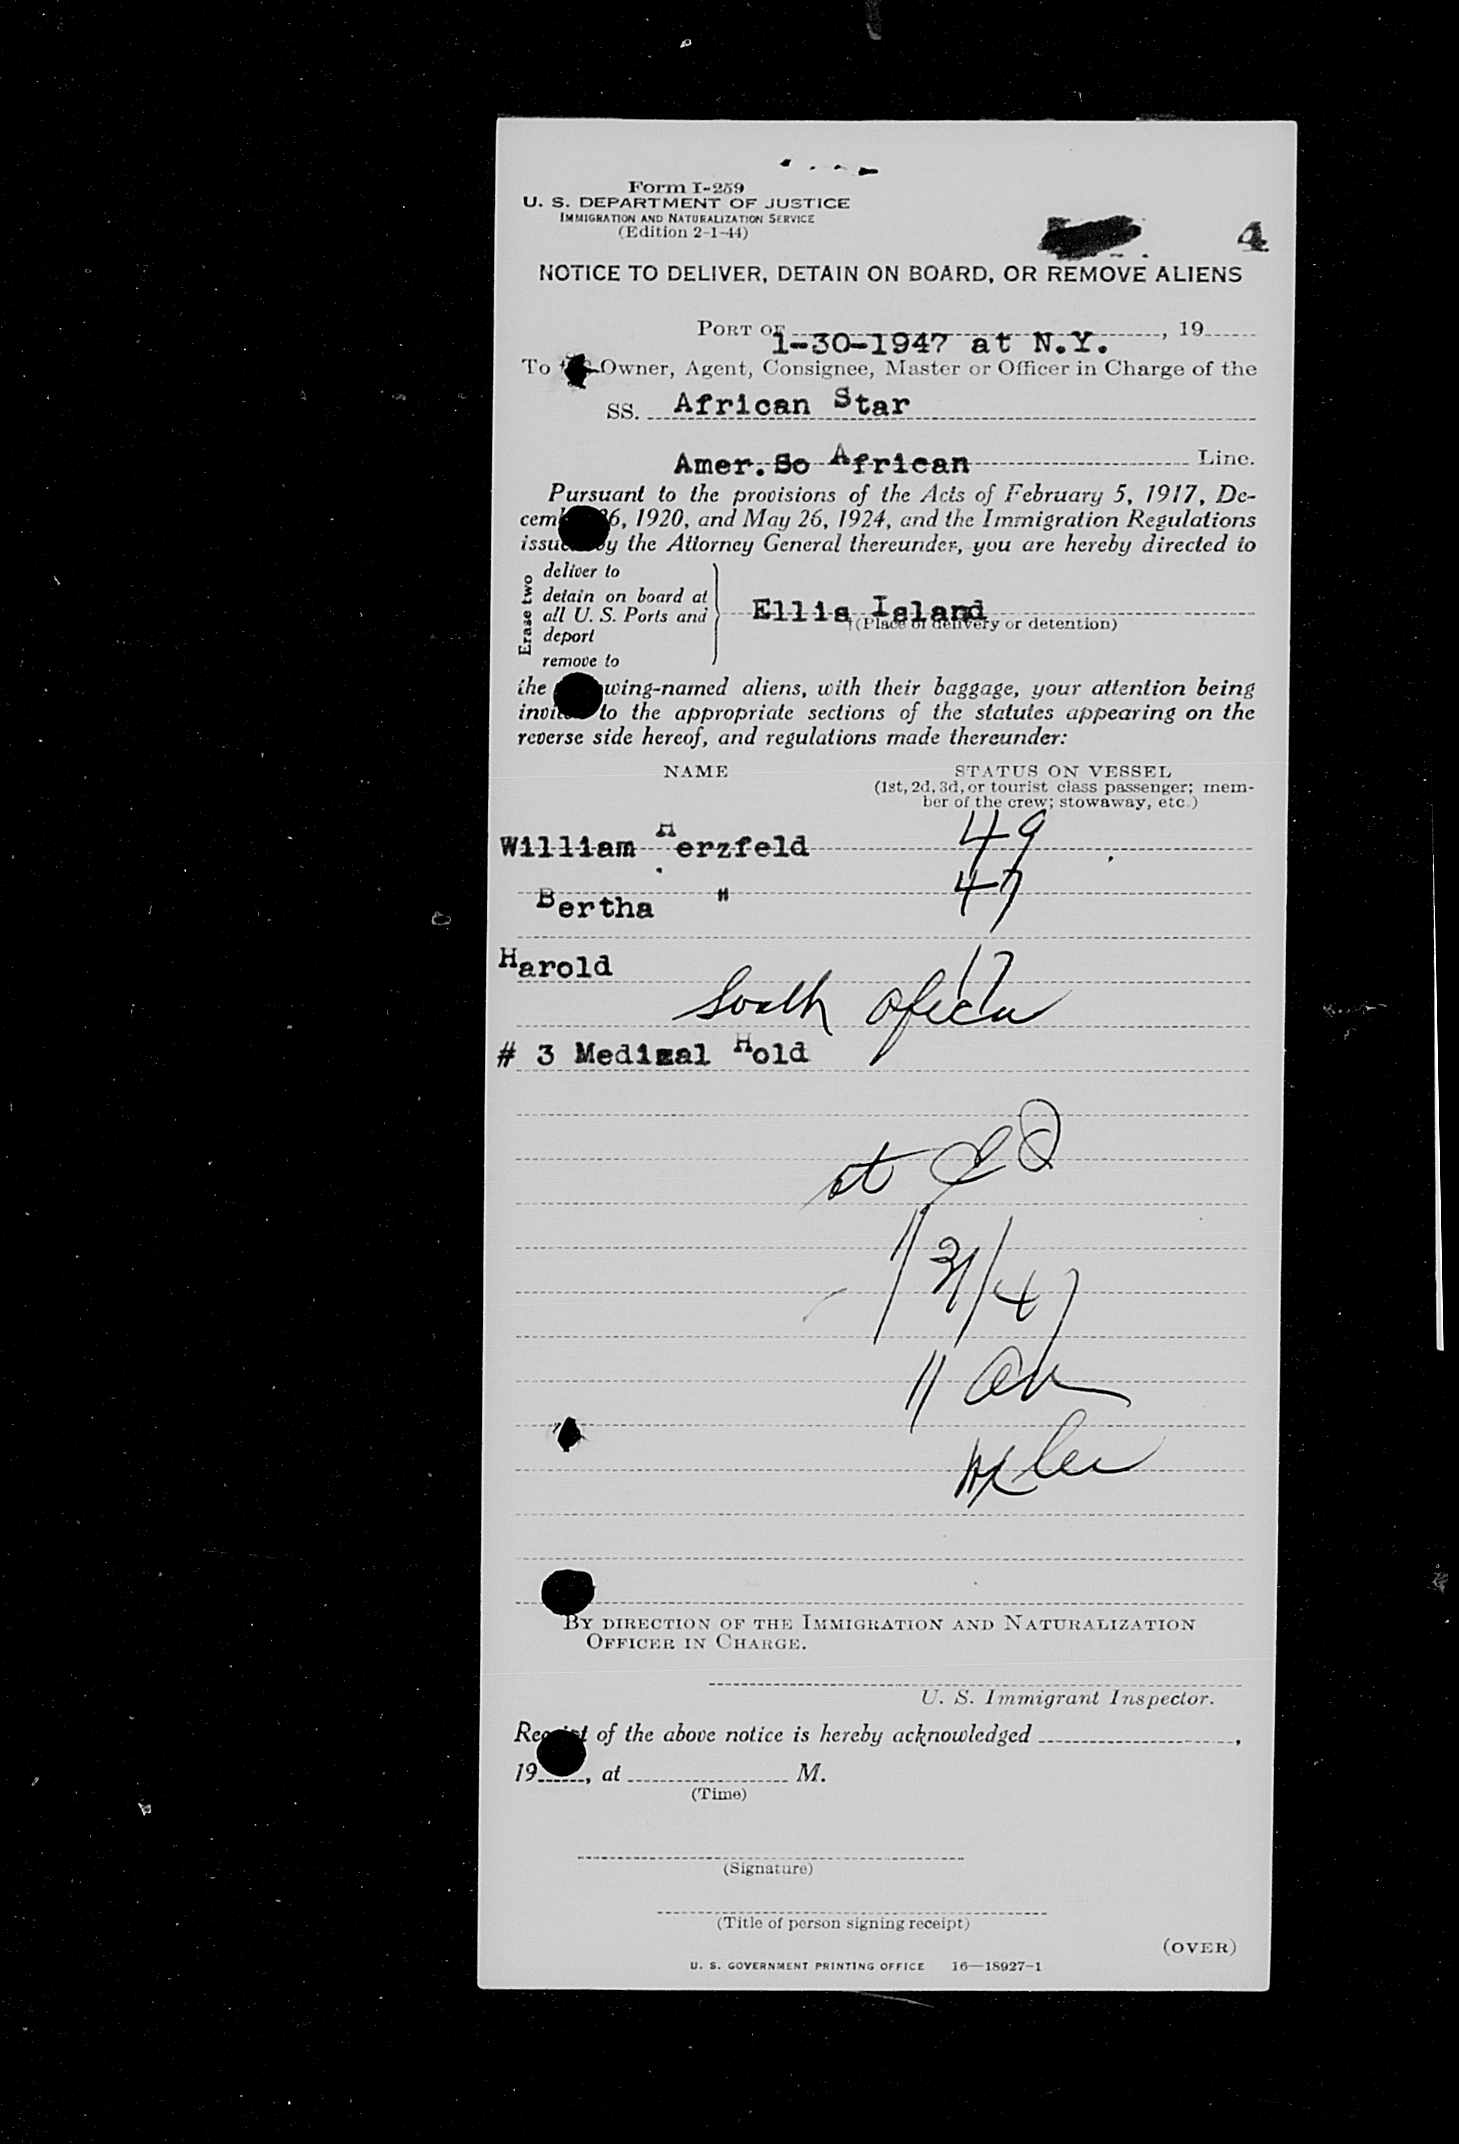 Form I-259
U. S. DEPARTMENT OF JUSTICE
IMMIGRATION AND NATURALIZATION SERVICE
(Edition 2-1-44)
4
NOTICE TO DELIVER, DETAIN ON BOARD, OR REMOVE ALIENS
PORT OF , 19
1-30-1947 at N.Y.
To Owner, Agent, Consignee, Master or Officer in Charge of the
SS. African Star
Amer. So African Line.
Pursuant to the provisions of the Acts of February 5, 1917, De-
cem 6, 1920, and May 26, 1924, and the Immigration Regulations
issu by the Attorney General thereunder, you are hereby directed to
Erase two
deliver to
detain on board at
all U. S. Ports and
deport
remove to
Ellis Island
(Place of delivery or detention)
the wing-named aliens, with their baggage, your attention being
invit to the appropriate sections of the statutes appearing on the
reverse side hereof, and regulations made thereunder:
NAME STATUS ON VESSEL
(1st, 2d, 3d, or tourist class passenger; mem-
ber of the crew; stowaway, etc.)
William Herzfeld 49
Bertha " 47
Harold 17
South Africa
# 3 Medical Hold
at
1/31/47
11
BY DIRECTION OF THE IMMIGRATION AND NATURALIZATION
OFFICER IN CHARGE.
U. S. Immigrant Inspector.
Receipt of the above notice is hereby acknowledged ,
19 , at M.
(Time)
(Signature)
(Title of person signing receipt)
(OVER)
U. S. GOVERNMENT PRINTING OFFICE 16—18927-1